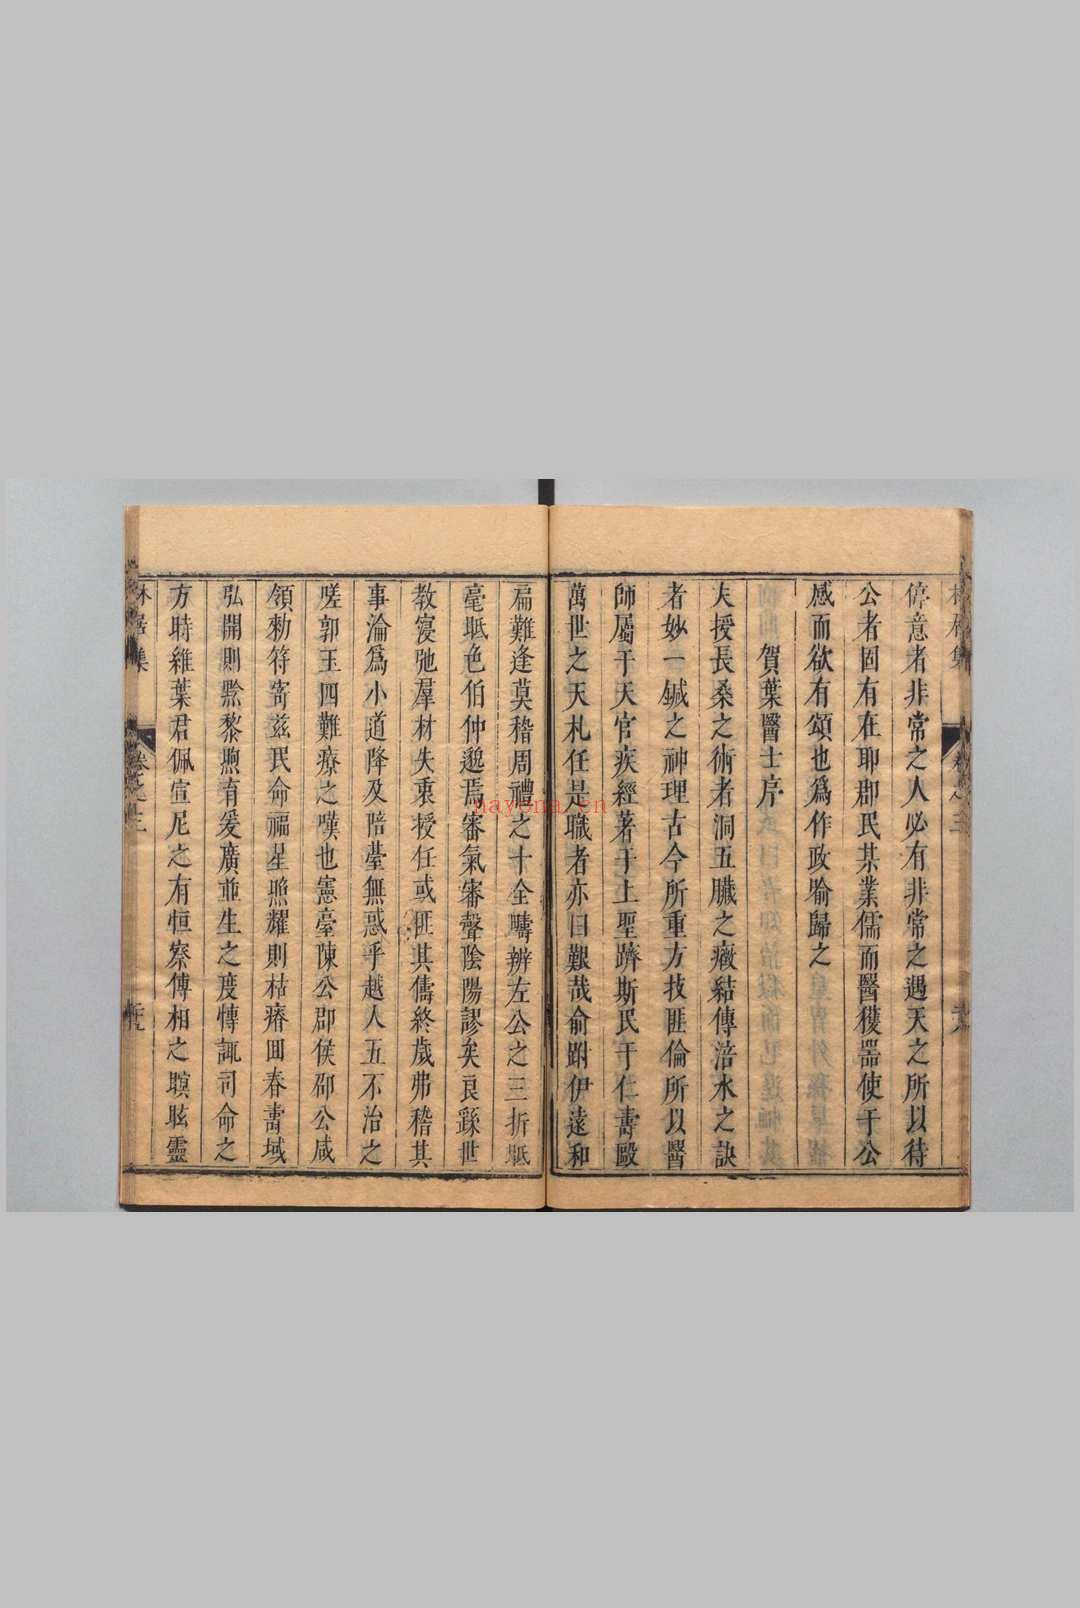 停意者非常之人必有非常之遇天之所以待
公者固有在耶郡民某業儒而醫獲器使于公
感而欲有頌也爲作政喻歸之
賀葉醫士序
夫授長桑之術者洞五臟之癥結傳涪水之訣
者妙一鍼之神理古今所重方技匪倫所以醫
師屬于天官疾經著于上聖躋斯民于仁壽毆
萬世之天札任是職者亦曰艱哉俞跗伊遠和
扁難逢莫稽周禮之十全疇辨左公之三折眡
毫眡色伯仲邈焉審氣審聲陰陽謬矣良繇世
教寖弛羣材失衷授任或匪其儔終歲弗稽其
事淪爲小道降及陪臺無惑乎越人五不治之
嗟郭玉四難療之嘆也憲臺陳公郡侯邵公咸
領勅符寄茲民命福星照耀則枯瘠回春壽域
弘開則黔黎煦育爰廣並生之度慱諏司命之
方時維葉君佩宣尼之有恒察傅相之瞑眩靈
林居集
卷之三
nayona.cn